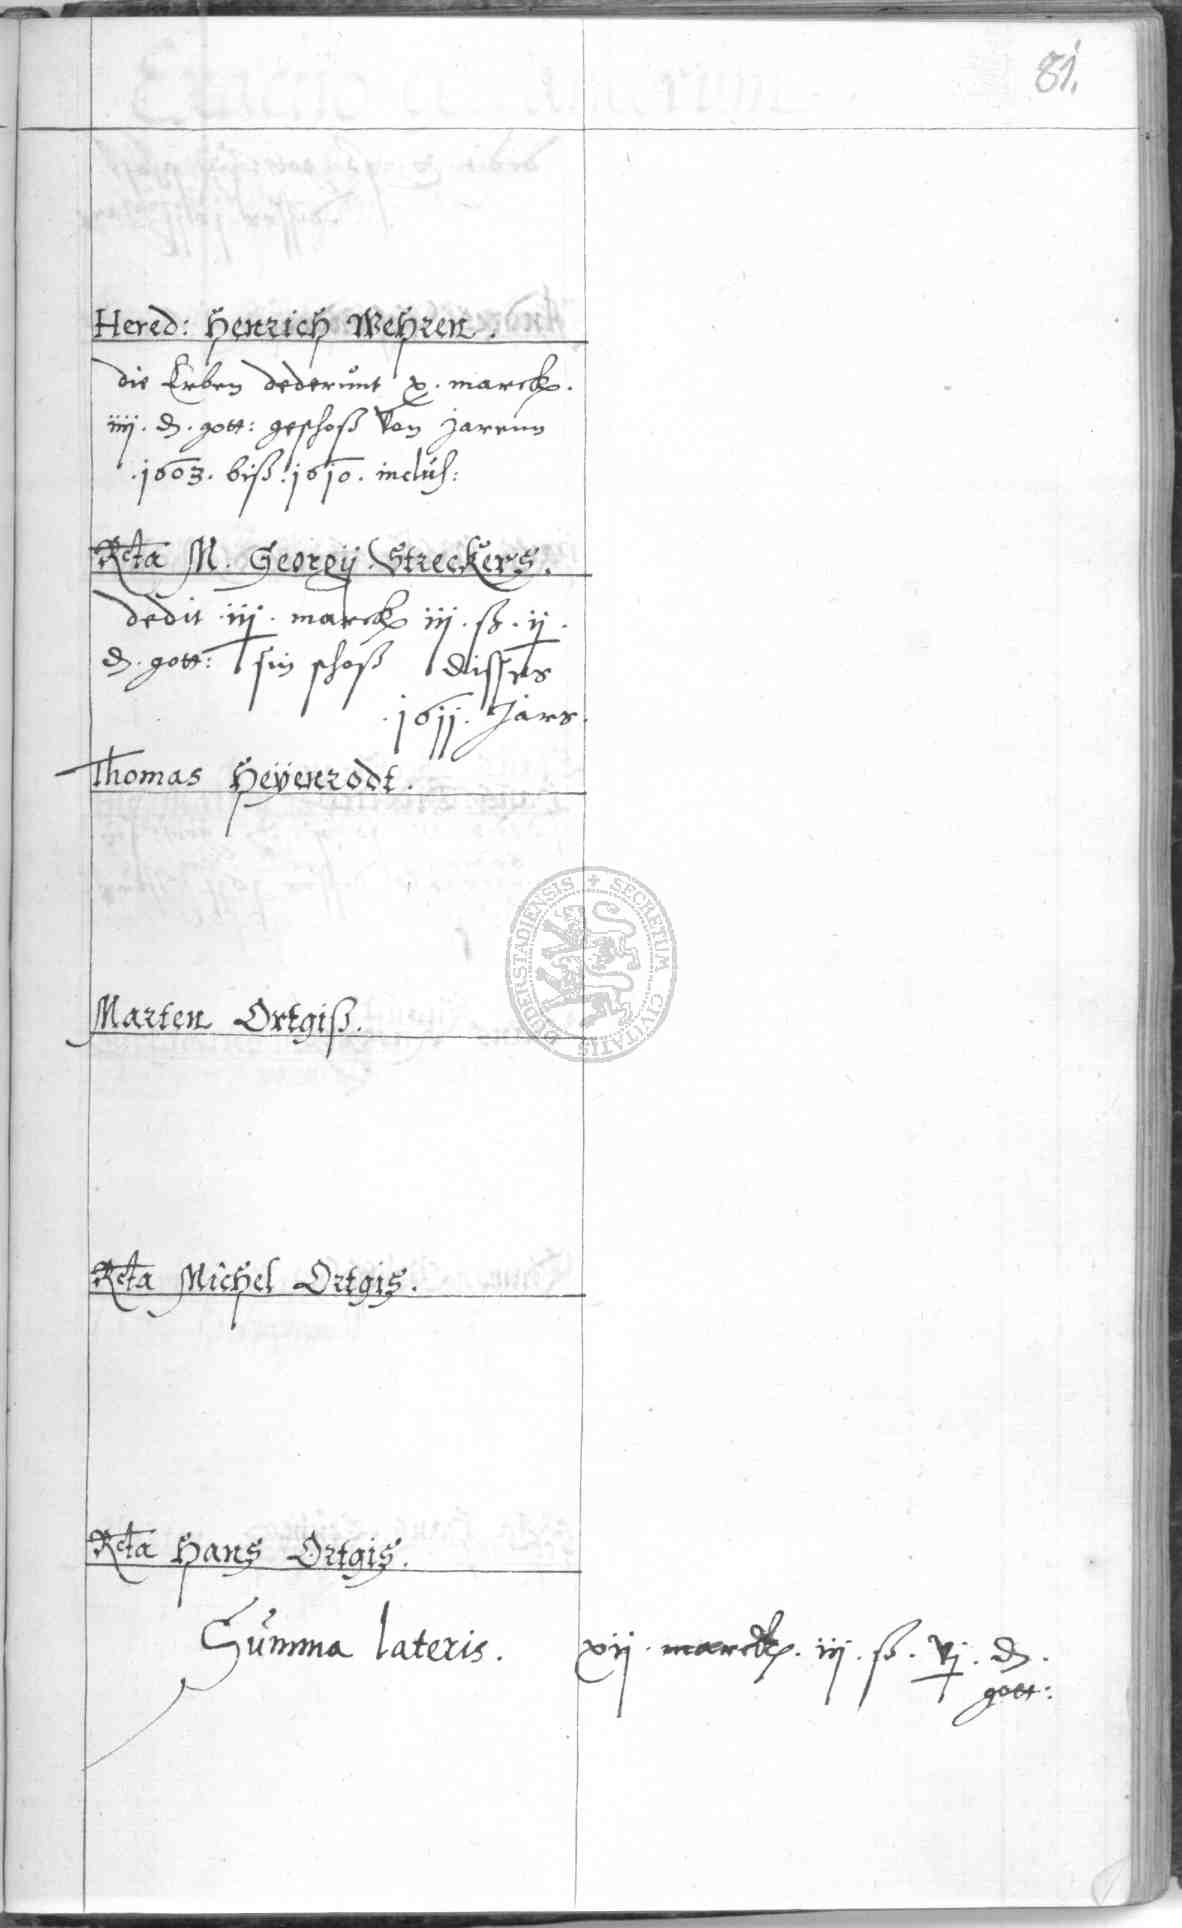 81.
Hered: Henrich Wehren.
die Erben dederunt x. marck.
iiij. d. gott: geschoß von jarenn
.1603. biß .1610. inclus:
Rcta M. Georgij Streckers.
dedit iij. marck iij. ß. ij.
d. gott: sin schoß disses
.1611. Jars.
Thomas Heÿenrodt.
Marten Ortgiß.
Rcta Michel Ortgis.
Rcta Hans Ortgis.
Summa lateris. xij. marck. iij. ß. vj. d.
gott:
SECRETUM CIVITATIS DUDERSTADIENSIS